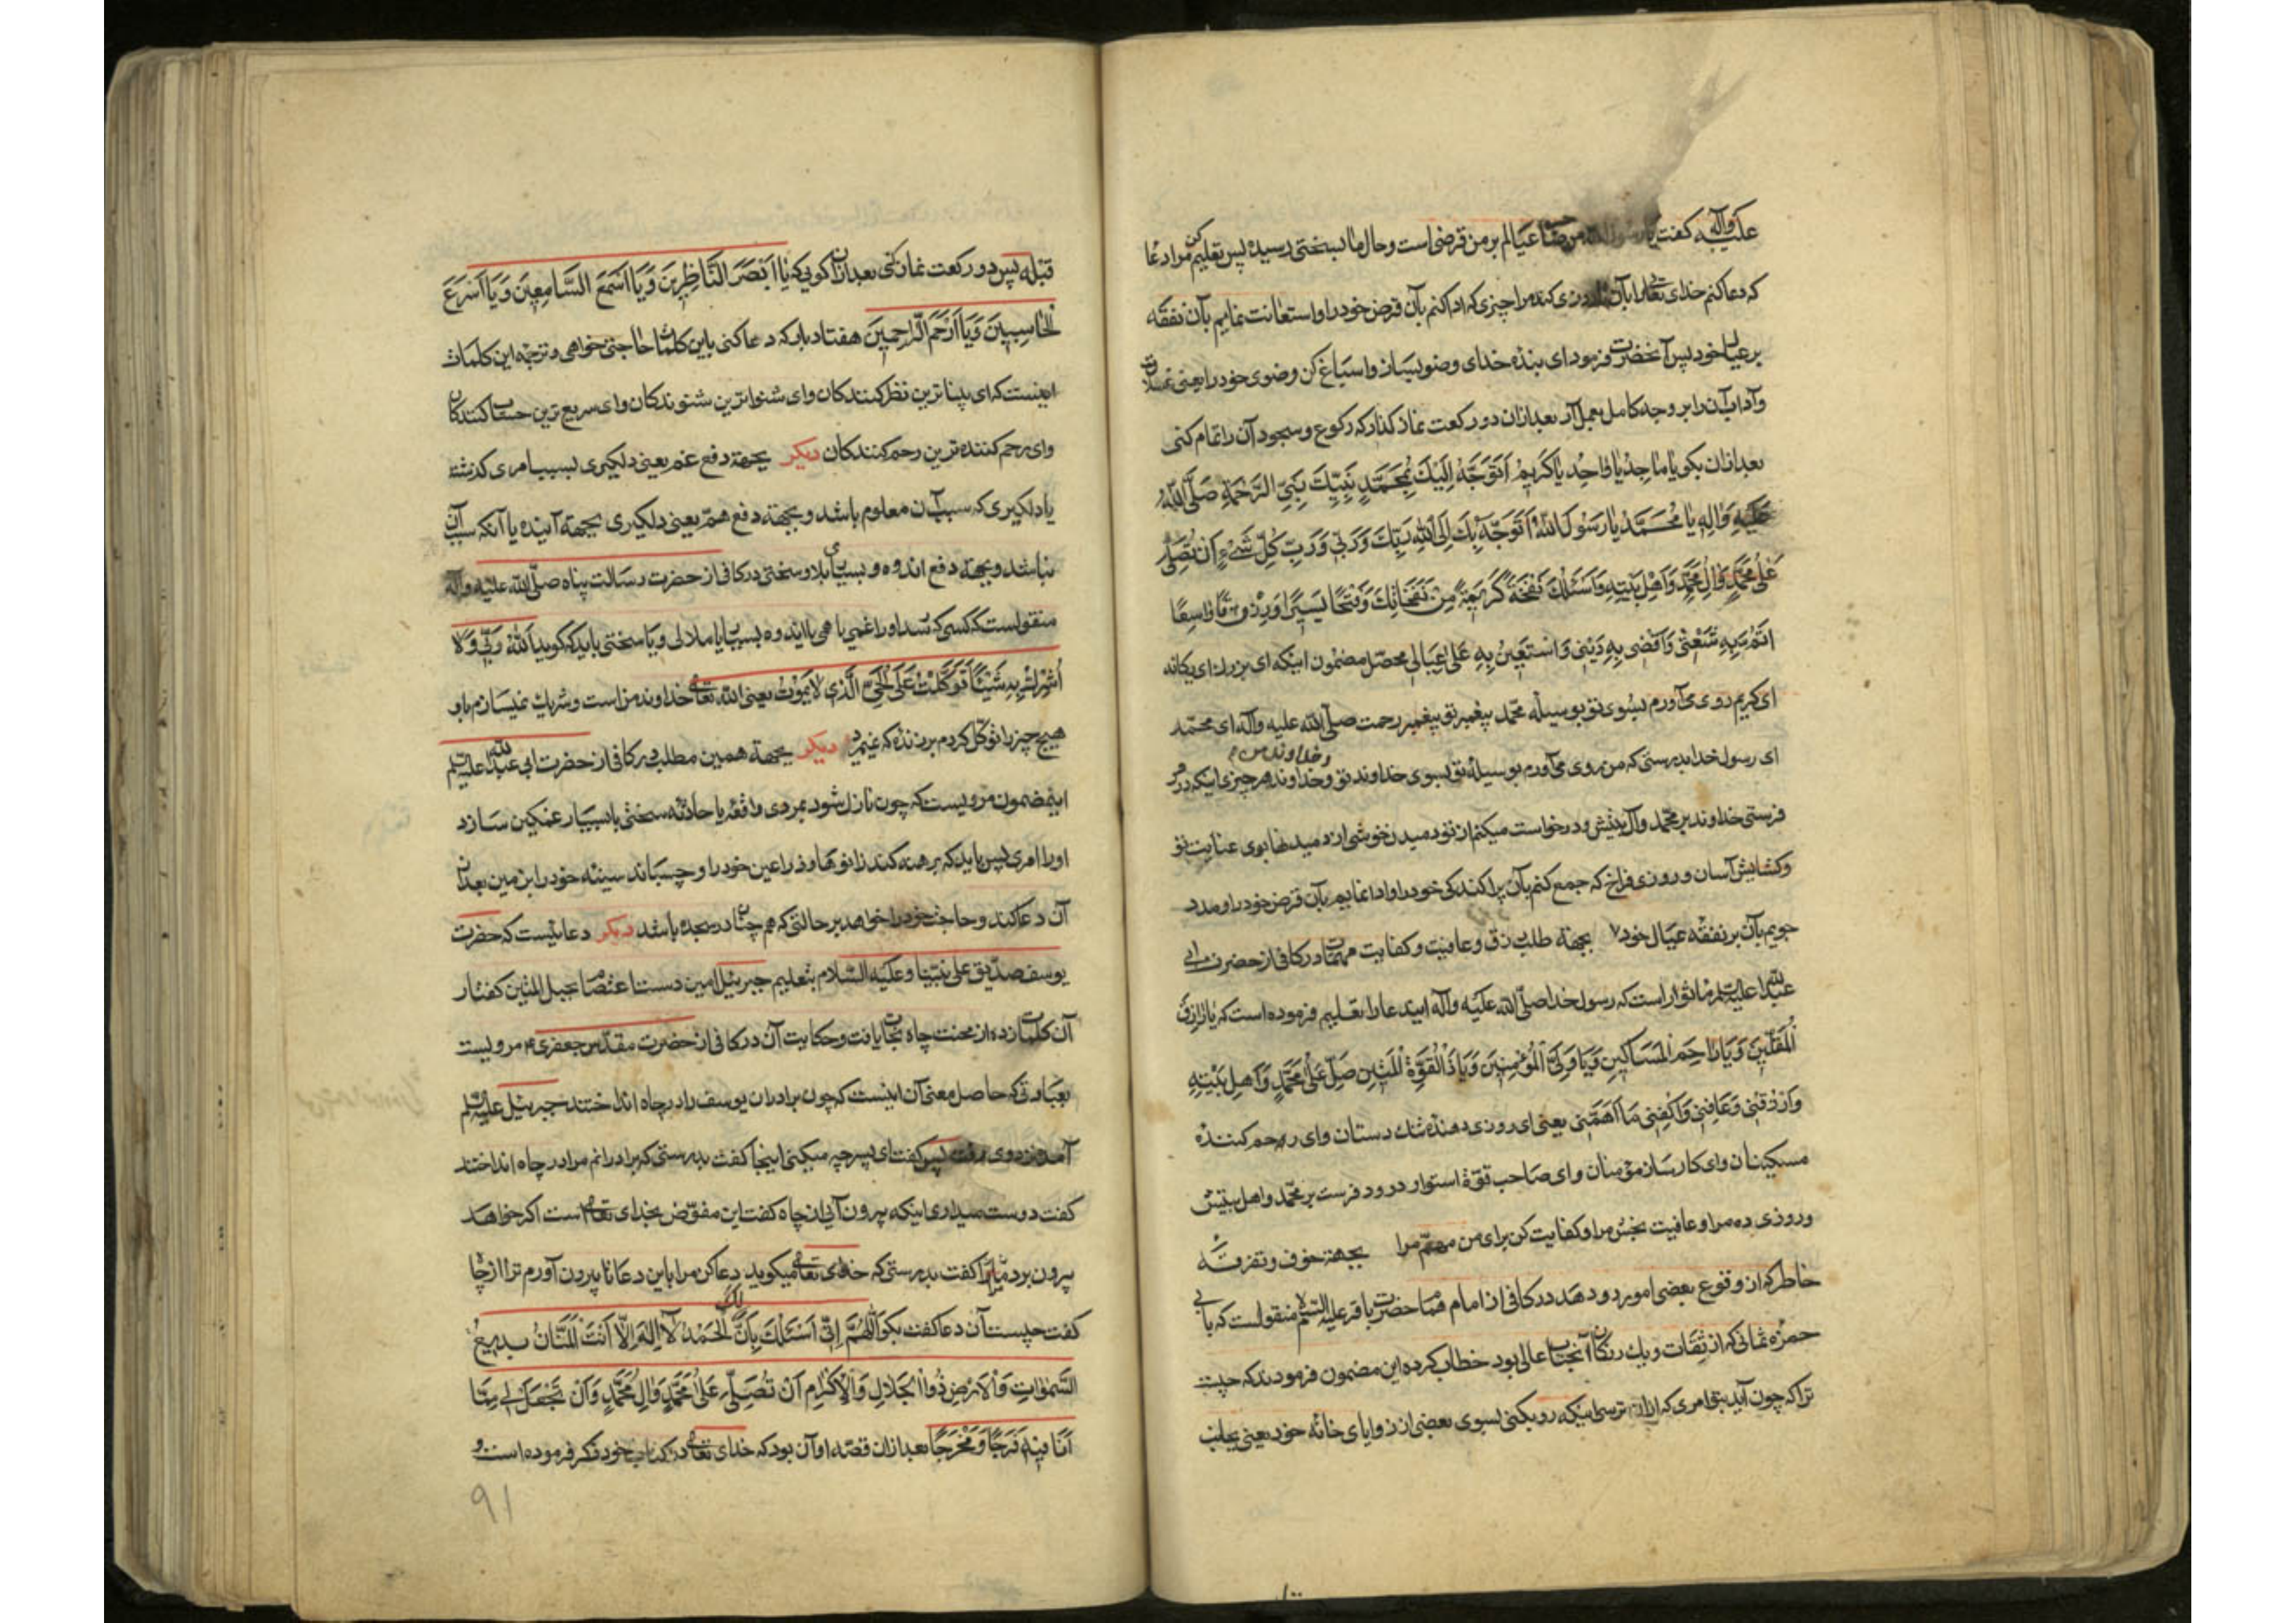 علیه وآله گفت یا رسول الله من صاحب عیالم بر من قرضی است و حال ما بسختی رسیده پس تعلیم کن مرا دعا
که دعا کنم خدای تعالی را بآن تا روزی کند مرا چیزی که ادا کنم بآن قرض خود را و استعانت نمایم بآن نفقه
بر عیال خود پس آنحضرت فرمود ای بنده خدای وضو بساز و اسباغ کن وضوی خود را یعنی
و آداب آن را بر وجه کامل بعمل آر بعد ازان دو رکعت نماز گذار که رکوع و سجود آن را تمام کنی
بعد ازان بکو یا ماجِدُ یا واحِدُ یا کَریمُ اَتَوَجَّهُ اِلَیكَ بِمُحَمَّدٍ نَبِیِّكَ نَبِیِّ الرَّحْمَةِ صَلَّی اللهُ
عَلَیهِ وَالِهِ یا مُحَمَّدُ یا رَسُولَ اللهِ اَتَوَجَّهُ بِكَ اِلَی اللهِ رَبِّكَ وَرَبّی وَرَبِّ کُلِّ شَیْءٍ اَنْ تُصَلِّیَ
عَلی مُحَمَّدٍ وَالِ مُحَمَّدٍ وَاَهْلِ بَیْتِهِ وَاَسْئَلُكَ نَفْحَةً کَریمَةً مِنْ نَفَحاتِكَ وَفَتْحًا یَسیرًا وَرِزْقًا واسِعًا
اَلُمُّ بِهِ شَعْثی وَاَقْضی بِهِ دَیْنی وَاَسْتَعینُ بِهِ عَلی عِیالی محصّل مضمون اینکه ای بزرك ای یکانه
ای کریم روی می آورم بسوی تو بوسیله محمد پیغمبر تو پیغمبر رحمت صلّی الله علیه وآله ای محمد
و خداوند من
ای رسول خدا بدرستی که من روی می آورم بوسیله تو بسوی خداوند تو و خداوند هر چیزی اینکه درود
فرستی خداوند بر محمد وآل بیتش و درخواست میکنم از تو دمیدن خوشی از دمیدنهای بوی عنایت تو
و کشایش آسان و روزی فراخ که جمع کنم بآن پراکندکی خود را و ادا نمایم بآن قرض خود را و مدد
جویم بآن بر نفقه عیال خود بجهة طلب رزق و عافیت و کفایت مهمات در کافی از حضرت ابی
عبد الله علیه السلام ماثور است که رسول خدا صلّی الله علیه وآله این دعا را تعلیم فرموده است که یا رازِقَ
المُقِلّینَ وَیا راحِمَ المَساکینِ وَیا وَلِیَّ المُؤْمِنینَ وَیا ذَا القُوَّةِ المَتینِ صَلِّ عَلی مُحَمَّدٍ وَاَهْلِ بَیْتِهِ
وَارْزُقْنی وَعافِنی وَاکْفِنی ما اَهَمَّنی یعنی ای روزی دهنده تنك دستان و ای رحم کننده
مسکینان و ای کارساز مؤمنان و ای صاحب قوّة استوار درود فرست بر محمد و اهل بیتش
و روزی ده مرا و عافیت بخش مرا و کفایت کن برای من مهمّ مرا بجهة خوف و تفرقه
خاطر که از وقوع بعضی امور رو دهد در کافی از امام همام حضرت باقر علیه السلام منقولست که با ابی
حمزه ثمالی که از ثقات و یك رنکان آنجناب عالی بود خطاب کرده این مضمون فرمودند که چیست
ترا که چون آید بتو امری که ازان ترسی اینکه رو بکنی بسوی بعضی از زوایای خانه خود یعنی بجانب
قبله پس دو رکعت نماز کنی بعد ازان کویی که یا اَبْصَرَ النّاظِرینَ وَیا اَسْمَعَ السّامِعینَ وَیا اَسْرَعَ
الحاسِبینَ وَیا اَرْحَمَ الرّاحِمینَ هفتاد بار که دعا کنی باین کلمات حاجتی خواهی و ترجمه این کلمات
اینست که ای بیناترین نظر کنندکان و ای شنواترین شنوندکان و ای سریع ترین حساب کنندکان
و ای رحم کننده ترین رحم کنندکان دیکر بجهة دفع غم یعنی دلکیری بسبب امری کذشته
یا دلکیری که سبب آن معلوم باشد و بجهة دفع همّ یعنی دلکیری بجهة آینده یا آنکه سبب آن
نباشد و بجهة دفع اندوه و بسیاری بلا و سختی در کافی از حضرت رسالت پناه صلّی الله علیه وآله
منقولست که کسی که رسد او را غمی یا همی یا اندوه بسیار یا ملالی و یا سختی باید که کوید اَللهُ رَبّی وَلا
اُشْرِكُ بِهِ شَیْئًا تَوَکَّلْتُ عَلَی الحَیِّ الَّذی لا یَمُوتُ یعنی الله تعالی خداوند من است و شریك نمیسازم باو
هیچ چیز را توکّل کردم بر زنده که نمیرد دیکر بجهة همین مطلب در کافی از حضرت ابی عبد الله علیه السلام
اینمضمون مرویست که چون نازل شود بمردی واقعه یا حادثه سختی یا بسیار غمکین سازد
او را امری پس باید که برهنه کند زانوها و ذراعین خود را و چسباند سینه خود را بزمین بعد ازان
آن دعا کند و حاجت خود را خواهد بر حالتی که هم چنان در سجده باشد دیکر دعائیست که حضرت
یوسف صدّیق علی نبیّنا وعلیه السّلام بتعلیم جبرئیل امین دست اعتصام بحبل المتین کفتار
آن کلمات زده از محنت چاه نجات یافت و حکایت آن در کافی از حضرت مقدّس جعفری مرویست
بعبارتی که حاصل معنی آن اینست که چون برادران یوسف را در چاه انداختند جبرئیل علیه السلام
آمد نزد وی پس کفت ای پسر چه میکنی اینجا کفت بدرستی که برادرانم مرا در چاه انداختند
کفت دوست میداری اینکه بیرون آئی از چاه کفت این مفوّض بخدای تعالی است اکر خواهد
بیرون برد مرا کفت بدرستی که خدای تعالی میکوید دعا کن مرا باین دعا تا بیرون آورم ترا از چاه
کفت چیست آن دعا کفت بکو اَللّهُمَّ اِنّی اَسْئَلُكَ بِاَنَّ لَكَ الحَمْدُ لا اِلهَ اِلّا اَنْتَ المَنّانُ بَدیعُ
السَّمواتِ وَالاَرْضِ ذُو الجَلالِ وَالاِکْرامِ اَنْ تُصَلِّیَ عَلی مُحَمَّدٍ وَالِ مُحَمَّدٍ وَاَنْ تَجْعَلَ لی مِمّا
اَنَا فیهِ فَرَجًا وَمَخْرَجًا بعد ازان قصّه او آن بود که خدای تعالی در کتاب خود ذکر فرموده است و
۹۱